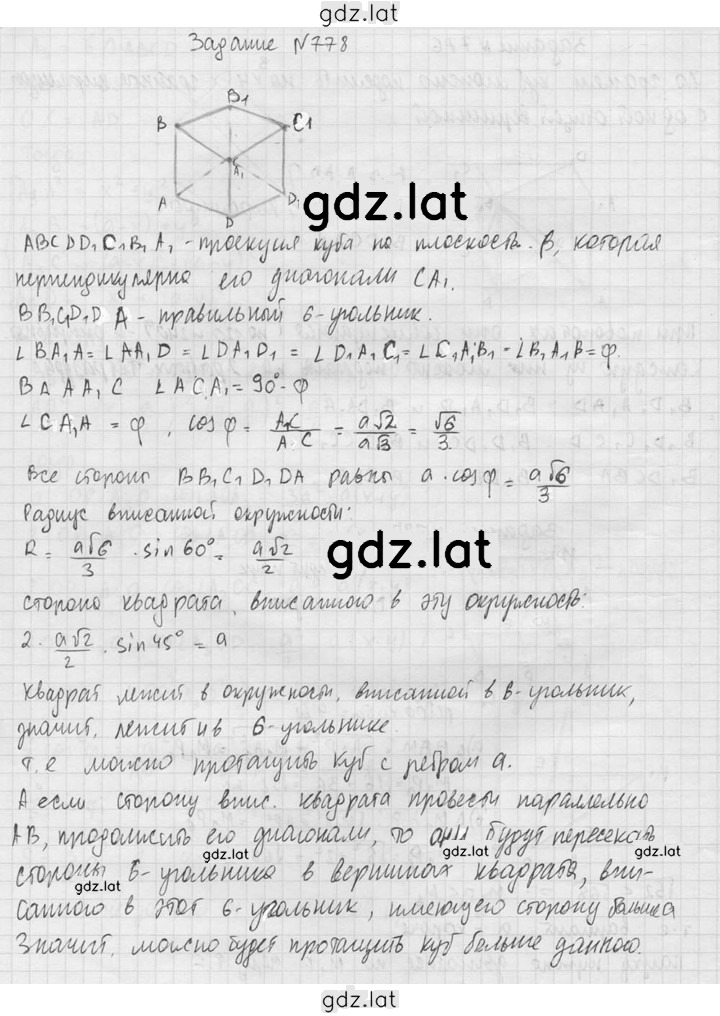 gdz.lat
Задание N778
B B1 C1
A1
A D1
D
gdz.lat
ABCDD1C1B1A1 - проекция куба по плоскость β, которая
перпендикулярна его диагонали CA1.
BB1C1D1DA - правильный 6-угольник.
∠BA1A = ∠AA1D = ∠DA1D1 = ∠D1A1C1 = ∠C1A1B1 = ∠B1A1B = φ.
В Δ AA1C ∠ACA1 = 90° - φ
∠CA1A = φ, cos φ = A1C/AC = a√2/a√3 = √6/3.
Все стороны BB1C1D1DA равны a · cosφ = a√6/3
Радиус вписанной окружности:
gdz.lat
R = a√6/3 · sin 60° = a√2/2
сторона квадрата, вписанного в эту окружность:
2 · a√2/2 · sin 45° = a
Квадрат лежит в окружности, вписанной в 6-угольник,
значит, лежит и в 6-угольнике.
т.е можно протащить куб с ребром a.
А если сторону впис. квадрата провести параллельно
AB, продолжить его диагонали, то они будут пересекать
gdz.lat gdz.lat
стороны 6-угольника в вершинах квадрата, впи-
санного в этот 6-угольник, имеющего сторону больше a
Значит, можно будет протащить куб больше данного.
gdz.lat
gdz.lat